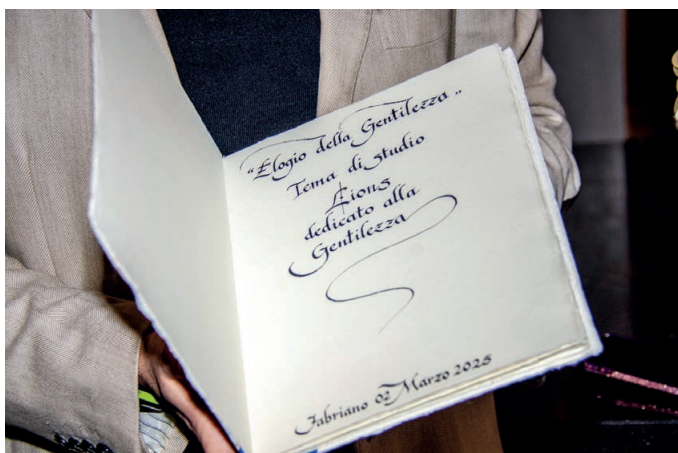 “Elogio della Gentilezza„
Tema di studio
Lions
dedicato alla
Gentilezza
Fabriano 02 Marzo 2025